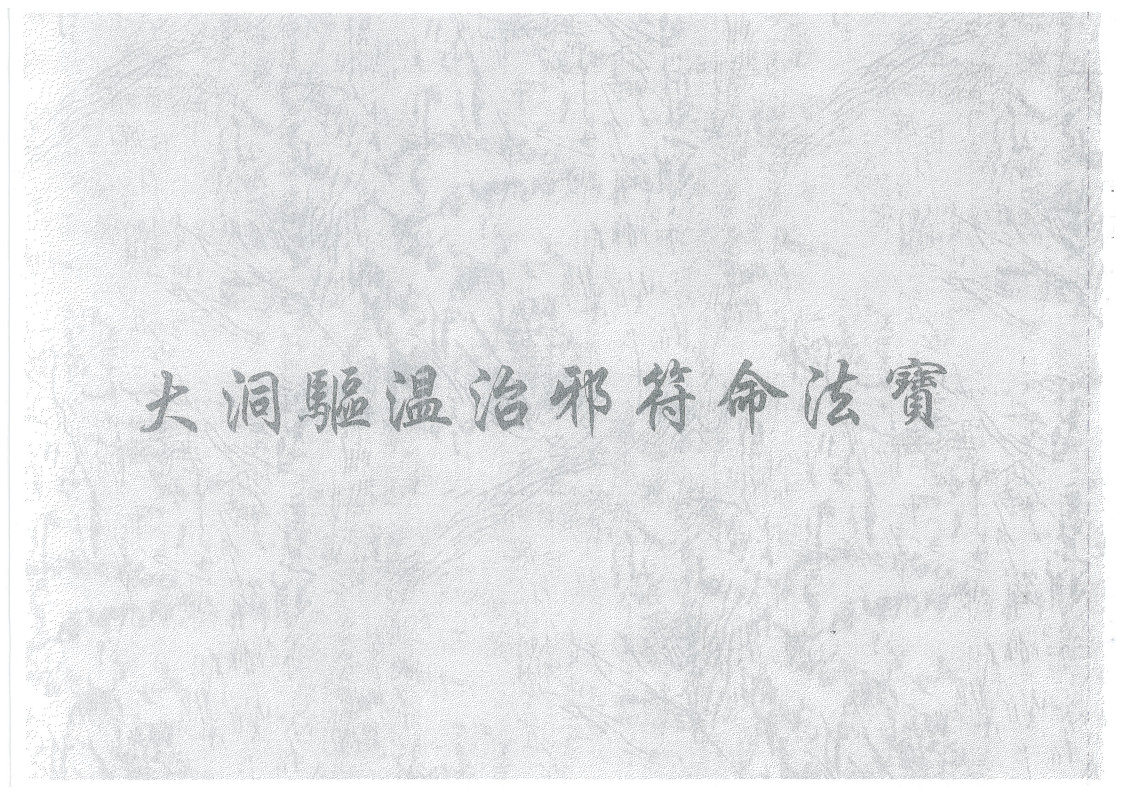 大洞驅温治邪符命法寶